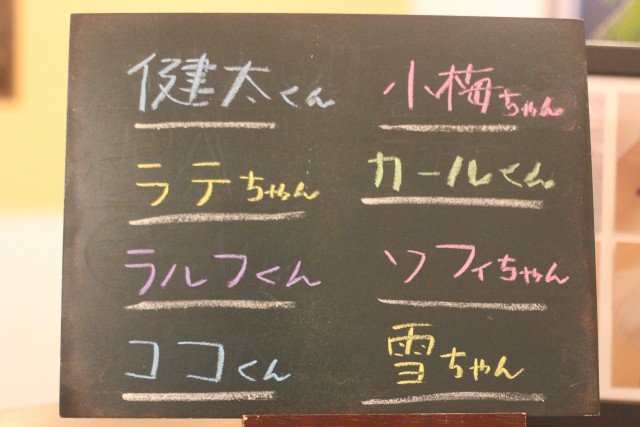 健太くん
小梅ちゃん
ラテちゃん
カールくん
ラルフくん
ソフィちゃん
ココくん
雪ちゃん